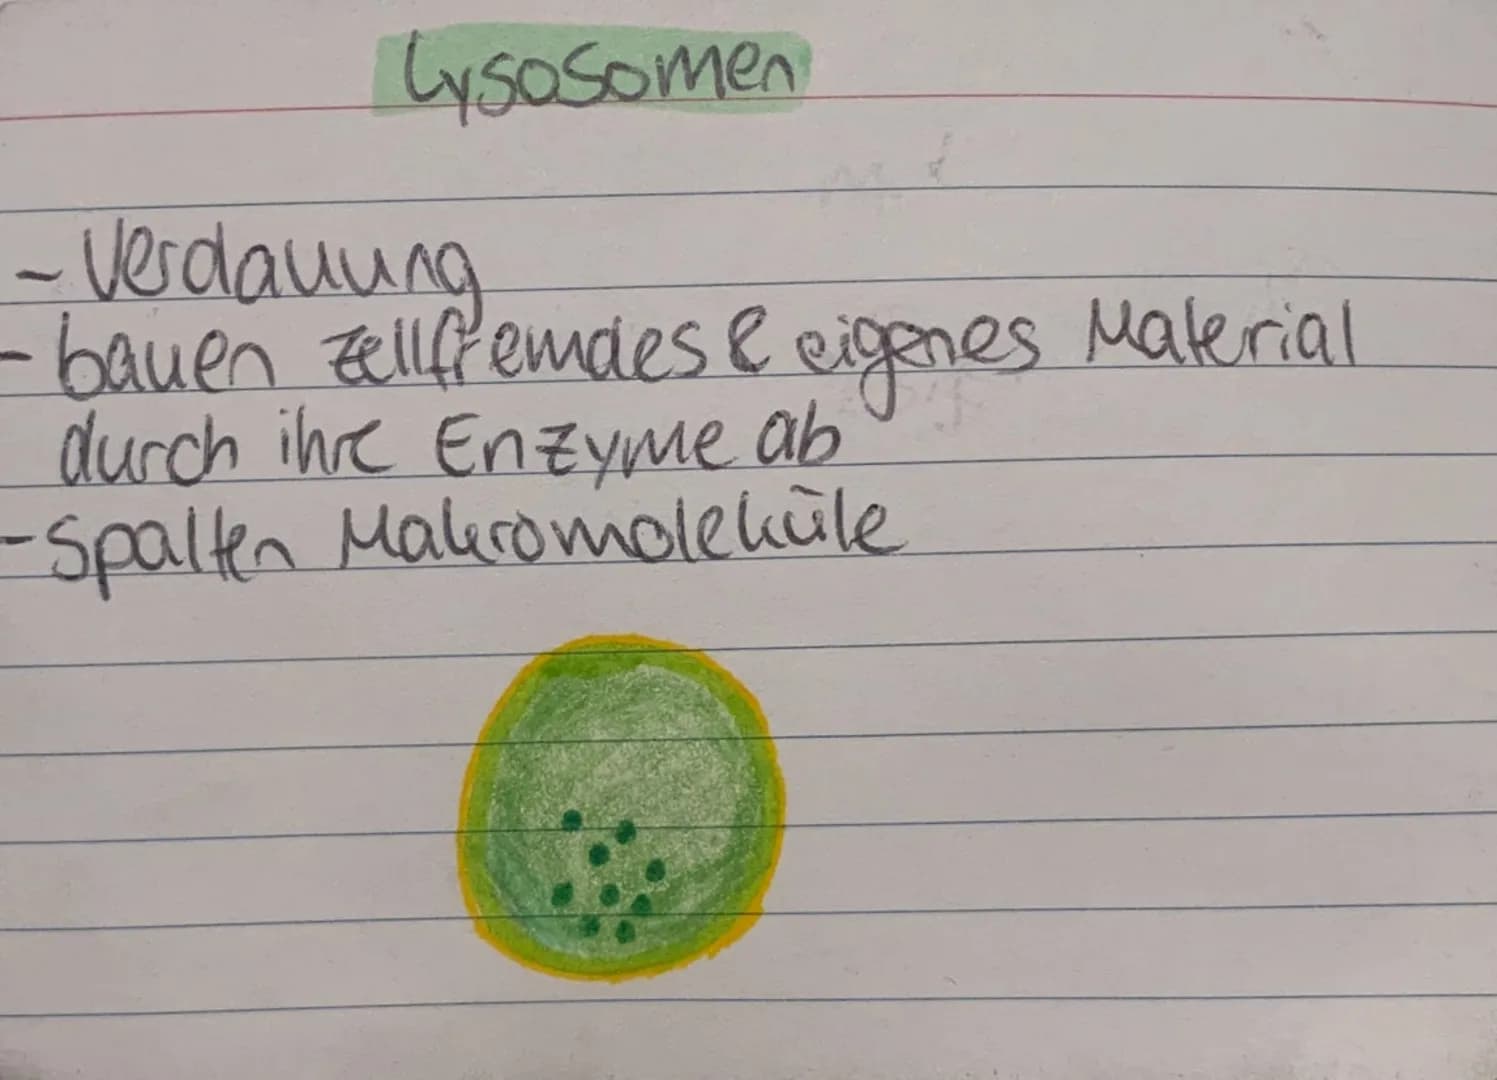 Lysosomen
- Verdauung
- bauen zellfremdes & eigenes Material
durch ihre Enzyme ab
- Spalten Makromoleküle